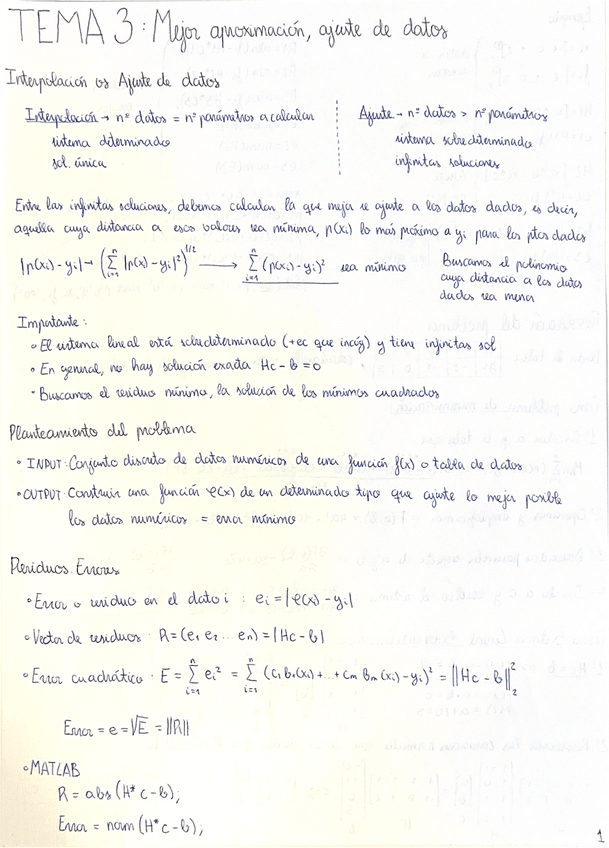 TEMA 3: Mejor aproximación, ajuste de datos
Interpolación vs Ajuste de datos
Interpolación → nº datos = nº parámetros a calcular
sistema determinado
sol. única
Ajuste → nº datos > nº parámetros
sistema sobredeterminado
infinitas soluciones
Entre las infinitas soluciones, debemos calcular la que mejor se ajuste a los datos dados, es decir,
aquella cuya distancia a esos valores sea mínima, p(xi) lo más próximo a yi para los ptos dados
|p(xi) - yi| → (∑ⁿᵢ₌₁ |p(x) - yi|²)^1/2 → ∑ⁿᵢ₌₁ (p(xi) - yi)² sea mínimo
Buscamos el polinomio
cuya distancia a los datos
dados sea menor
Importante:
◦ El sistema lineal está sobredeterminado (+ec que incóg) y tiene infinitas sol
◦ En general, no hay solución exacta Hc - b = 0
- Buscamos el residuo mínimo, la solución de los mínimos cuadrados
Planteamiento del problema
◦ INPUT: Conjunto discreto de datos numéricos de una función f(x) o tabla de datos
◦ OUTPUT: Construir una función φ(x) de un determinado tipo que ajuste lo mejor posible
los datos numéricos = error mínimo
Residuos. Errores
◦ Error o residuo en el dato i : ei = |φ(x) - yi|
◦ Vector de residuos: R = (e1 e2 ... en) = |Hc - b|
◦ Error cuadrático: E = ∑ⁿᵢ₌₁ ei² = ∑ⁿᵢ₌₁ (c1 b1(xi) + ... + cm bm(xi) - yi)² = ||Hc - b||²₂
Error = e = √E = ||R||
◦ MATLAB
R = abs (H*c - b);
Error = norm (H*c - b);
1